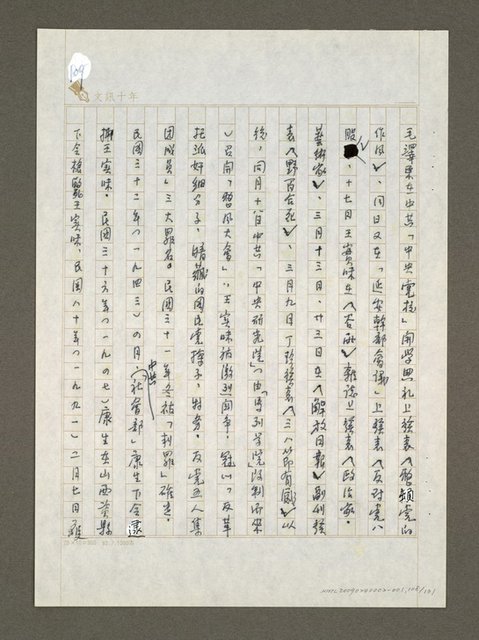 109
文訊十年
毛澤東在中共「中央黨校」開學典礼上發表《整頓黨的
作風》、同日又在「延安幹部會議」上發表《反對黨八
股》、十七日王實味在《谷雨》雜誌上發表《政治家、
藝術家》、三月十三日、廿三日在《解放日報》副刊發
表《野百合花》、三月九日丁玲發表《三八節有感》以
後，同月十八日中共「中央研究院」(由「馬列學院」改制而來
)召開「整風大會」，王實味被激烈鬥爭，冠以「反革
托派奸細分子，暗藏的國民黨探子、特務，反黨五人集
團成員」三大罪名。民國三十一年冬被「判罪」確定。
民國三十二年(一九四三)四月中共「社會部」康生下令逮
捕王實味。民國三十六年(一九四七)康生在山西興縣
下令槍斃王實味，民國八十年(一九九一)二月七日